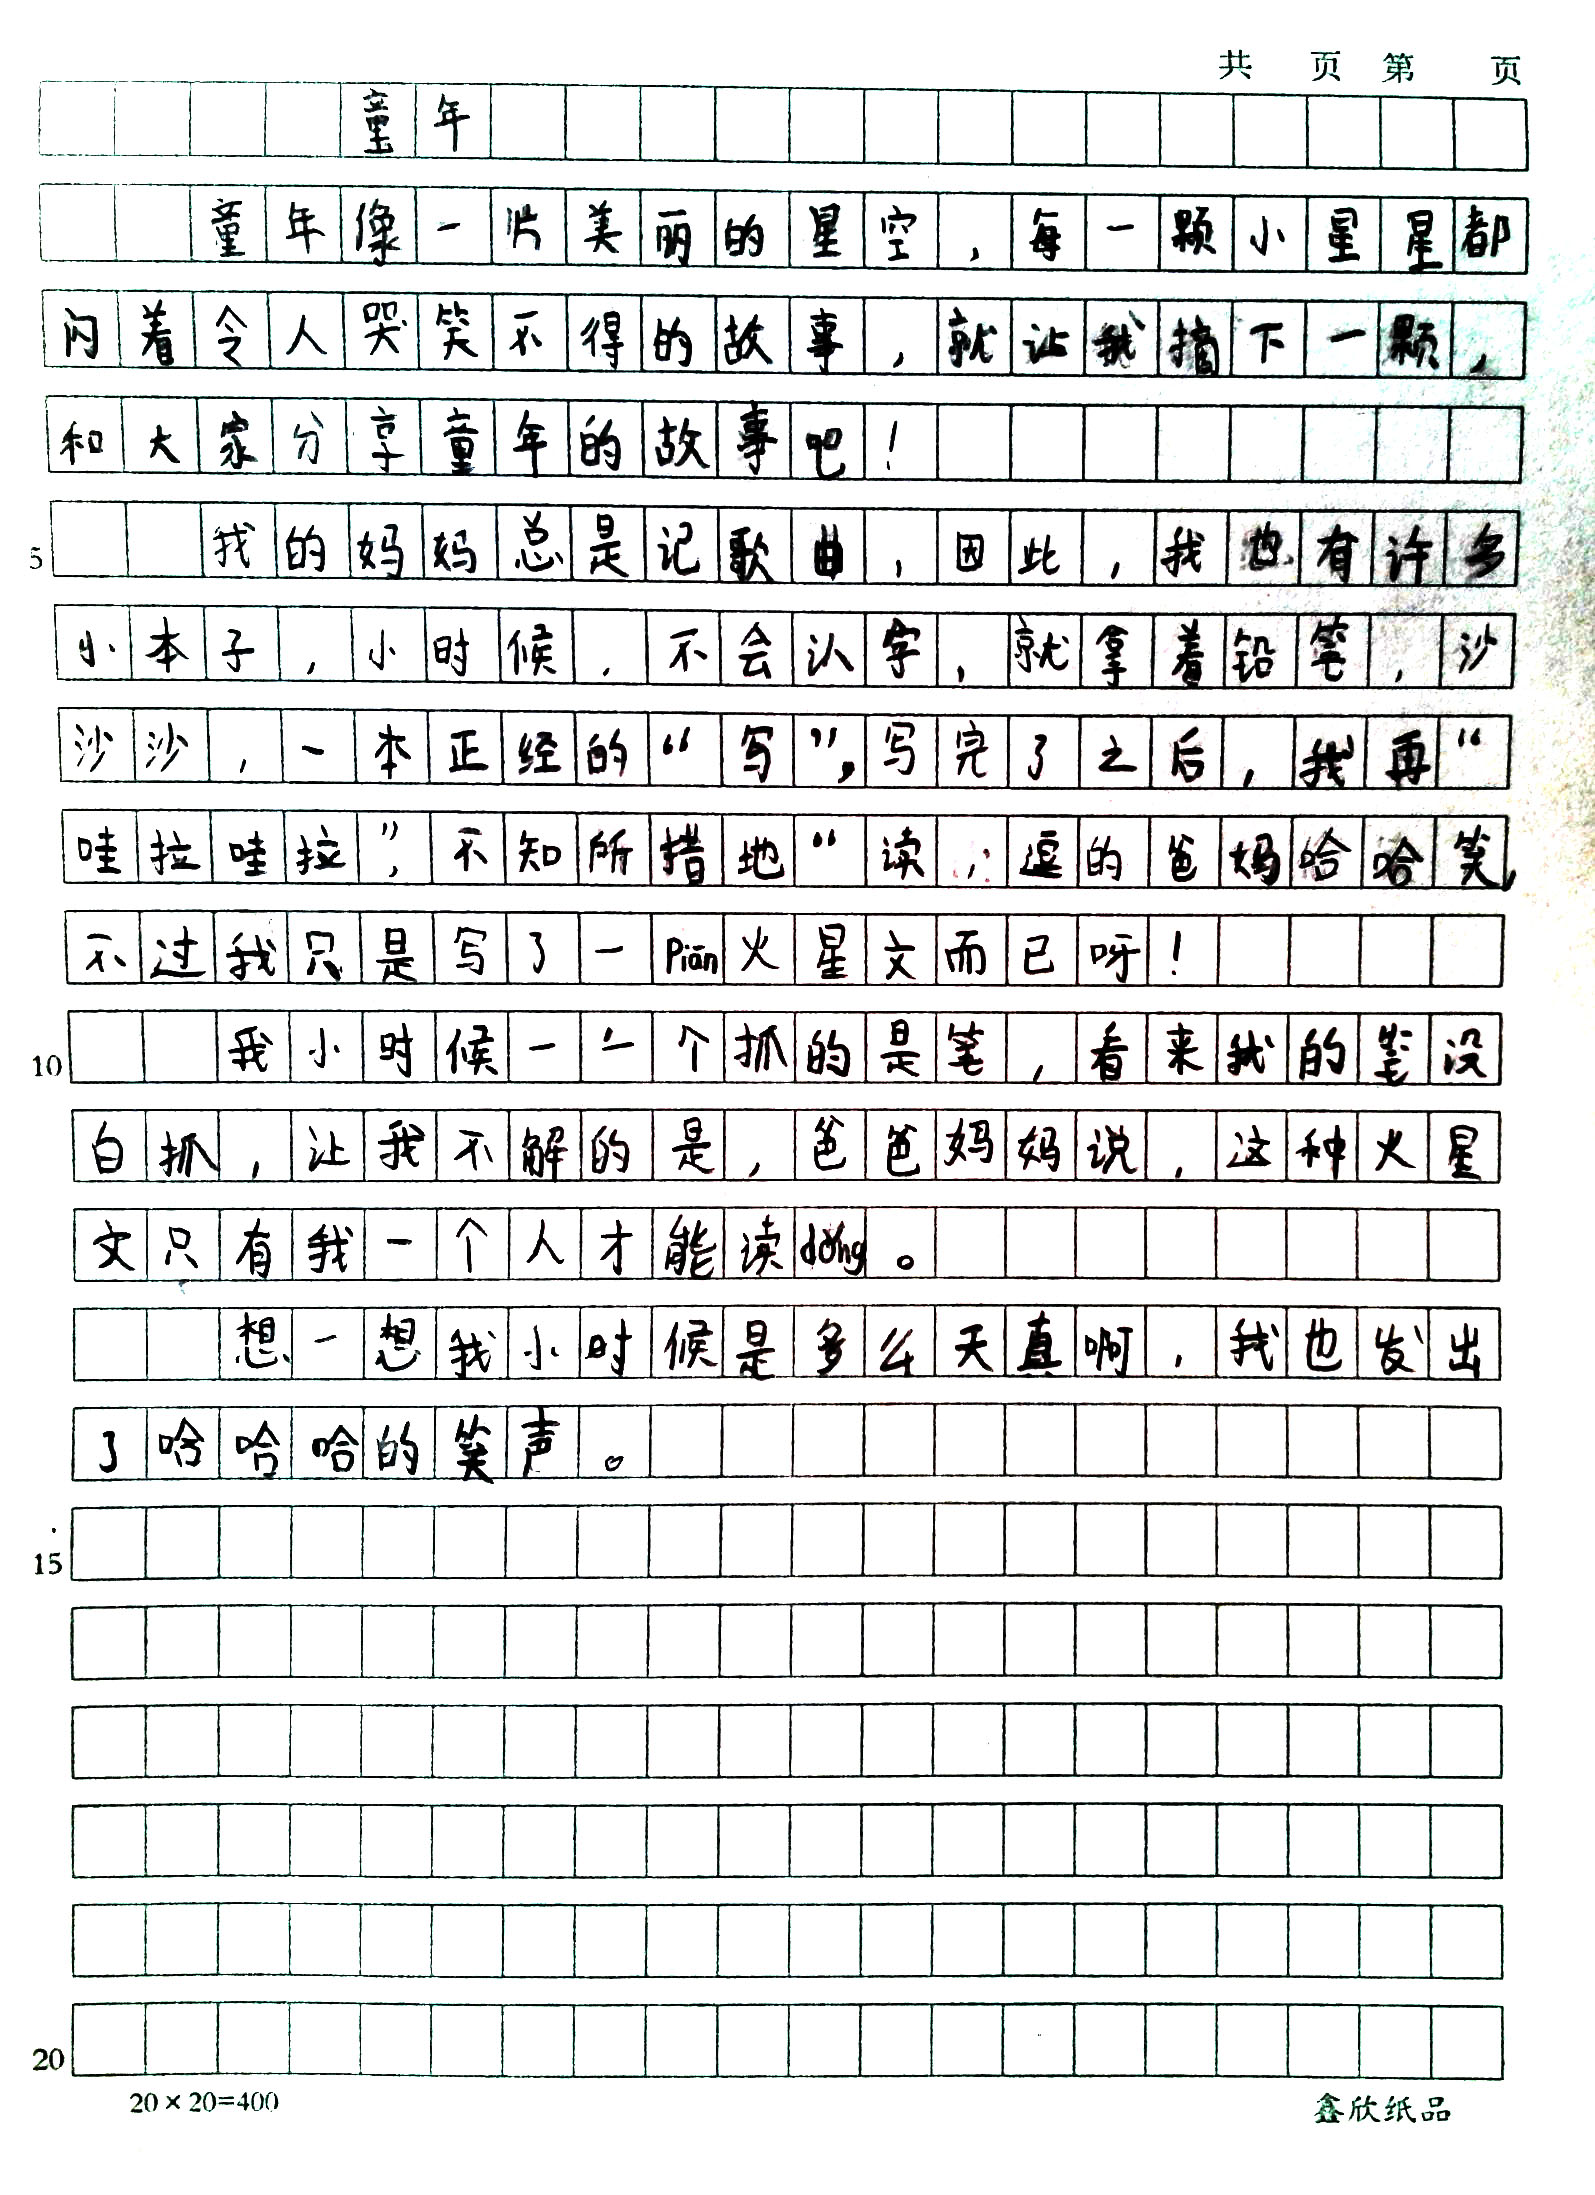 共 页 第 页
童年
童年像一片美丽的星空，每一颗小星星都
闪着令人哭笑不得的故事，就让我摘下一颗，
和大家分享童年的故事吧！
5 我的妈妈总是记歌曲，因此，我也有许多
小本子，小时候，不会认字，就拿着铅笔，沙
沙沙，一本正经的“写”，写完了之后，我再“
哇拉哇拉”，不知所措地“读，逗的爸妈哈哈笑，
不过我只是写了一piān火星文而已呀！
10 我小时候一个抓的是笔，看来我的笔没
白抓，让我不解的是，爸爸妈妈说，这种火星
文只有我一个人才能读dǒng。
想一想我小时候是多么天真啊，我也发出
了哈哈哈的笑声。
15
20
20×20=400 鑫欣纸品